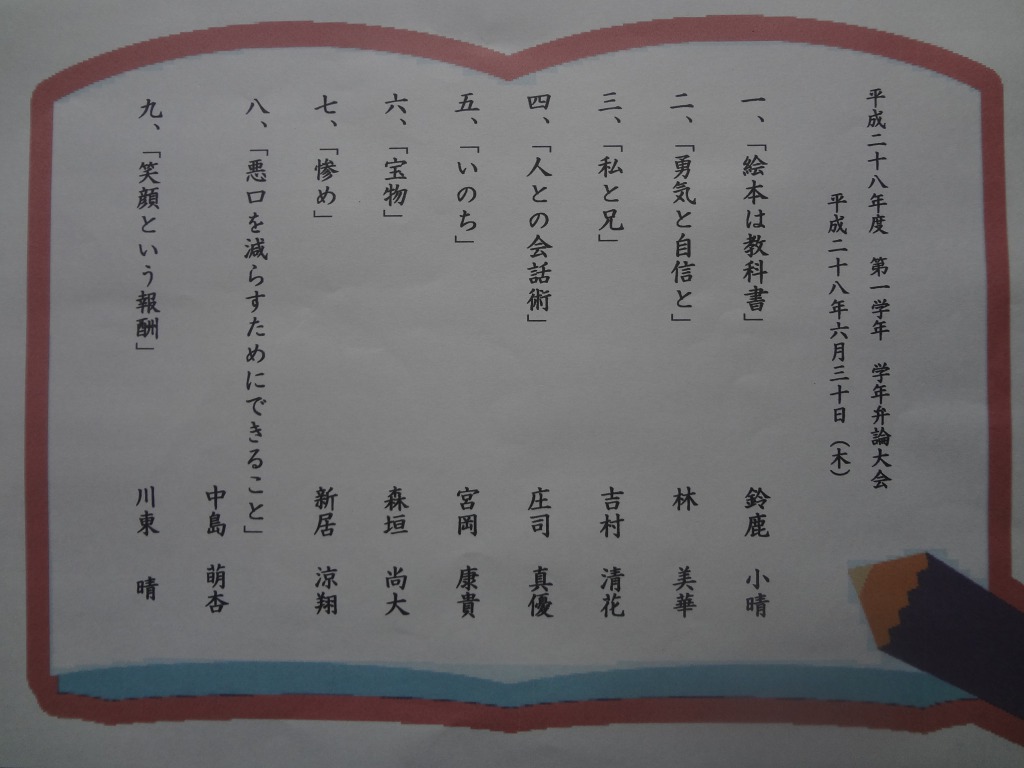 平成二十八年度 第一学年 学年弁論大会
平成二十八年六月三十日（木）
一、「絵本は教科書」 鈴鹿 小晴
二、「勇気と自信と」 林 美華
三、「私と兄」 吉村 清花
四、「人との会話術」 庄司 真優
五、「いのち」 宮岡 康貴
六、「宝物」 森垣 尚大
七、「惨め」 新居 涼翔
八、「悪口を減らすためにできること」
中島 萌杏
九、「笑顔という報酬」 川東 晴